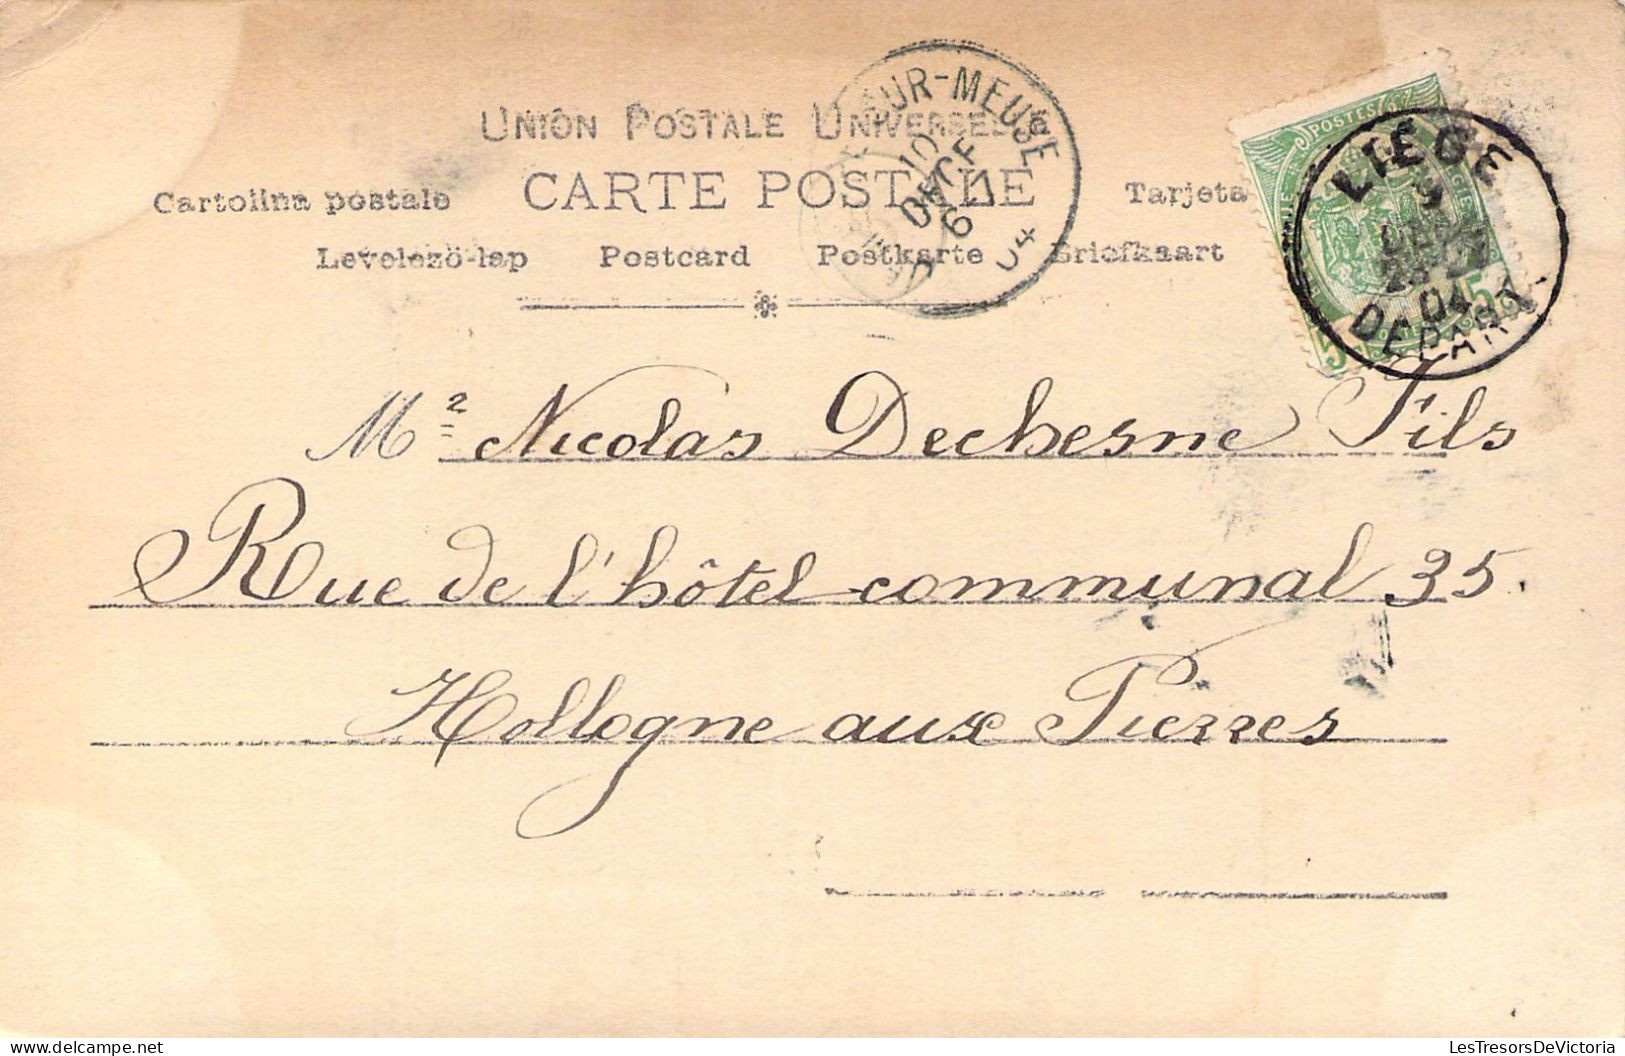 UNION POSTALE UNIVERSELLE
CARTE POSTALE
Cartolina postale
Tarjeta
Levelezö-lap Postcard Postkarte Briefkaart
SUR-MEUSE
10
DECE
6-
04
POSTES
5
LIÉGE
9
DEC
04
DEPART
M.r Nicolas Dechesne Fils
Rue de l'hôtel communal 35.
Hollogne aux Pierres
LesTresorsDeVictoria
www.delcampe.net